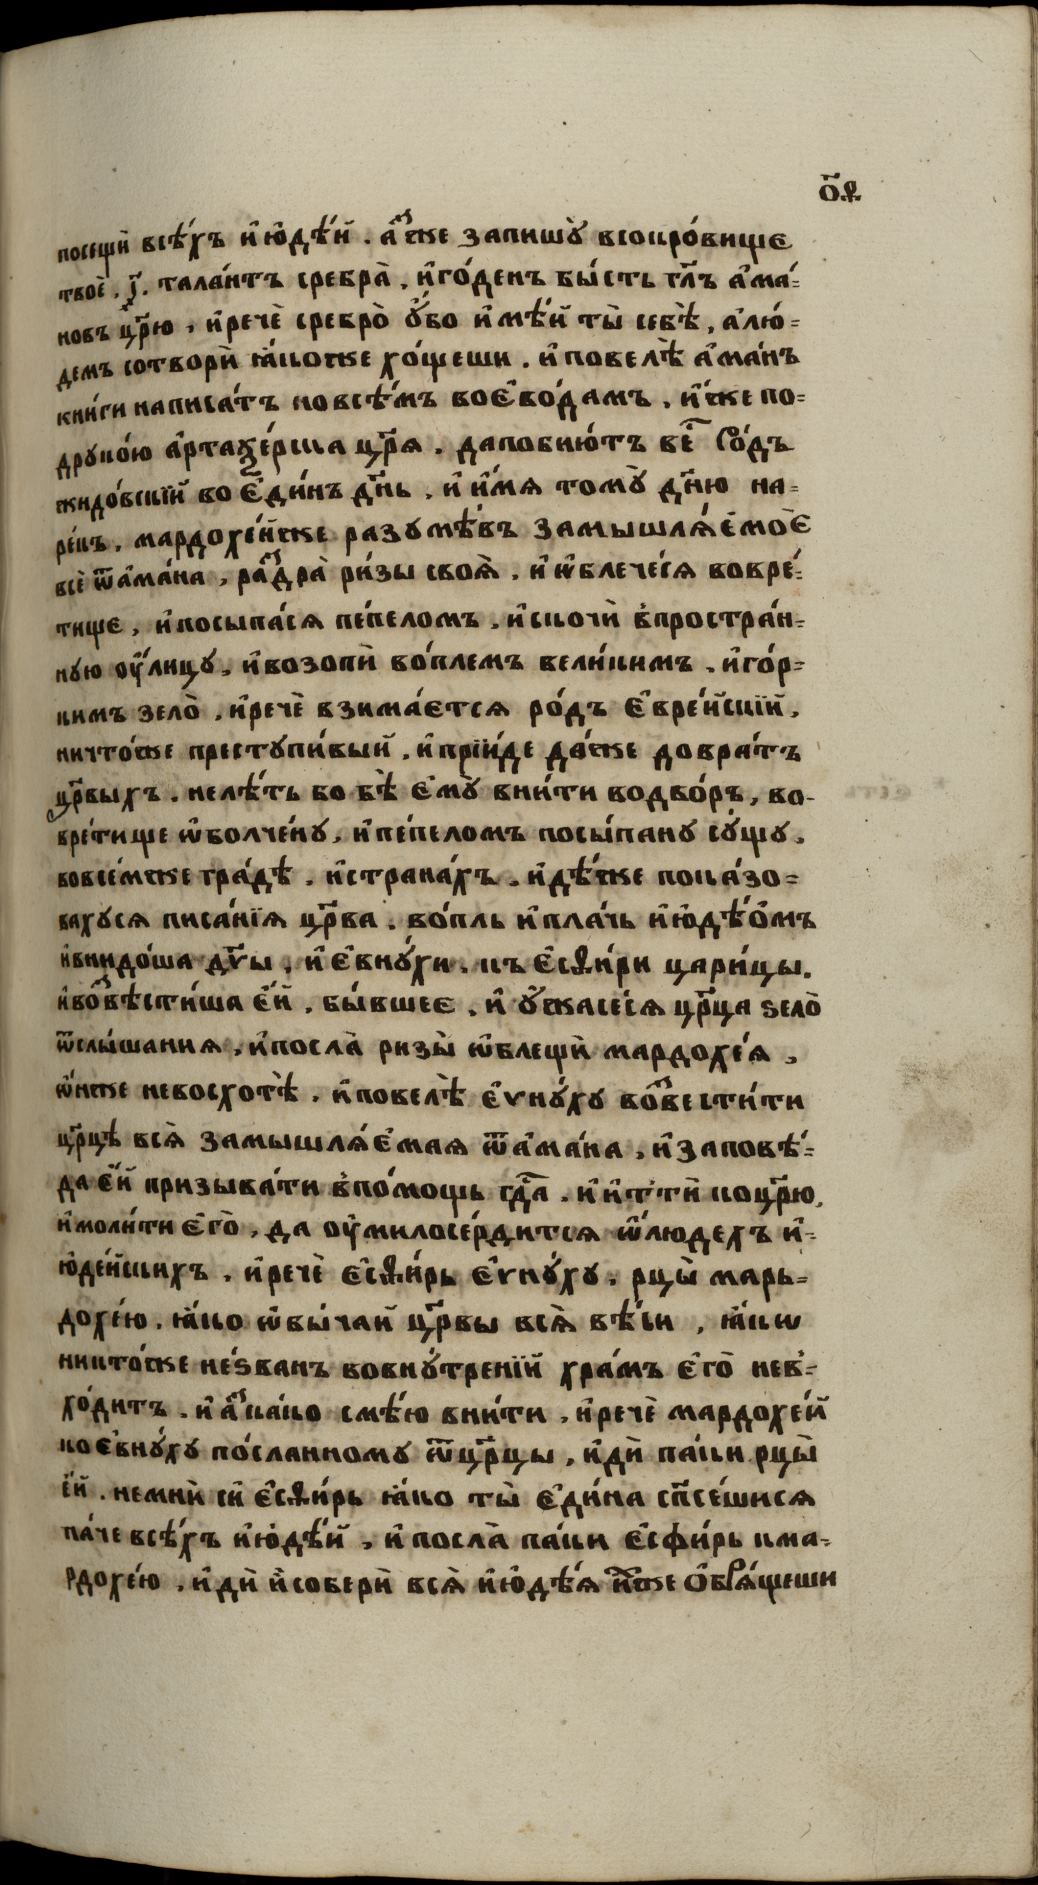 о҃ѳ
посещѝ всѣ́хъ и҆ю҆дѣ́й . а҆́зже запишꙋ̀ всокро́вище
твоѐ . ҂і҃ . тала́нтъ сребра̀ . и҆го́денъ бы́сть гл҃ъ а҆ма́-
новъ цр҃ю , и҆речѐ сребро̀ ᲂу҆́бо и҆мѣ́й ты̀ себѣ̀ , а҆лю́-
демъ сотворѝ ꙗ҆́коже хо́щеши . и҆повелѣ̀ а҆ма́нъ
кни́ги написа́тъ повсѣ́мъ воєво́дамъ . и҆́же по-
дрꙋко́ю а҆ртаѯе́рѯа цр҃ѧ . дапобию́тъ ве́с ро́дъ
жидо́вскїй во є҆ди́нъ дн҃ь . и҆ и҆́мѧ томꙋ̀ дн҃ю на-
ре́къ . мардохе́йже разꙋмѣ́въ замышлѧ́ємоє
всѐ ѿа҆ма́на , ра́здра̀ ри́зы своѧ̀ . и҆ ѡ҆блече́сѧ вовре́-
тище , и҆посыпа́сѧ пе́пеломъ . и҆скочѝ в̾простра́н-
нꙋю ᲂу҆́лицꙋ . и҆возопѝ во́племъ вели́кимъ . и҆го́р-
кимъ зело̀ . и҆речѐ взима́єтсѧ ро́дъ є҆вре́йскїй .
ничто́же престꙋпи́вый . и҆прїи́де да́же довра́тъ
цр҃выхъ . нелѣ́ть бо бѣ̀ є҆мꙋ̀ вни́ти водво́ръ , во-
вре́тище ѡ҆болче́нꙋ , и҆пе́пеломъ посы́панꙋ сꙋ́щꙋ .
вовсе́мже гра́дѣ . и҆страна́хъ . и҆дѣ́же пока́зо-
вахꙋсѧ писа́нїѧ цр҃ва . во́пль и҆пла́чь и҆ю҆дѣ́ѡмъ
ивнидо́ша дв҃ы , и҆ є҆внꙋ́хи . къ є҆сѳи́ри цари́цы .
иво́звѣсти́ша є҆́й . бы́вшеє . и҆ ᲂу҆жасе́сѧ цр҃ца ѕело̀
ѿслы́шаниѧ , и҆посла̀ ризы̀ ѡ҆блещѝ мардохе́ѧ ,
ѡ҆́нже невосхотѣ̀ . и҆повелѣ̀ є҆ѵнꙋ́хꙋ во́звести́ти
цр҃цѣ всѧ̀ замышлѧ́ємаѧ ѿа҆ма́на , и҆заповѣ́-
да є҆́й призыва́ти в̾по́мощь гд҃а . и҆ и҆тти̏ коцр҃ю .
и҆моли́ти є҆го̀ . да ᲂу҆милосе́рдитсѧ ѡ҆людехъ и҆-
ю҆де́йскихъ . и҆речѐ є҆сѳи́рь є҆ѵнꙋ́хꙋ . рцы̀ марь-
дохе́ю . ꙗ҆́ко ѡ҆бы́чай цр҃вы всѧ̀ вѣ́си , ꙗ҆́кѡ
никто́же не́ѕванъ вовнꙋ́тренїй хра́мъ є҆го̀ нев̾-
хо́дитъ . и҆ а҆́зка́ко смѣ́ю вни́ти , и҆речѐ мардохе́й
коє҆внꙋ́хꙋ по́сланномꙋ ѿцр҃цы , и҆дѝ па́ки рцы̀
є҆́й . немнѝ си̏ є҆сѳи́рь ꙗ҆́ко ты̀ є҆ди́на сп҃се́шисѧ
па́че всѣ́хъ и҆ю҆дѣ́й , и҆ посла̀ па́ки є҆сфи́рь кма-
рдохе́ю . и҆дѝ и҆соберѝ всѧ̀ и҆ю҆дѣ́ѧ и҆́хже ѻ҆брѧ́щеши